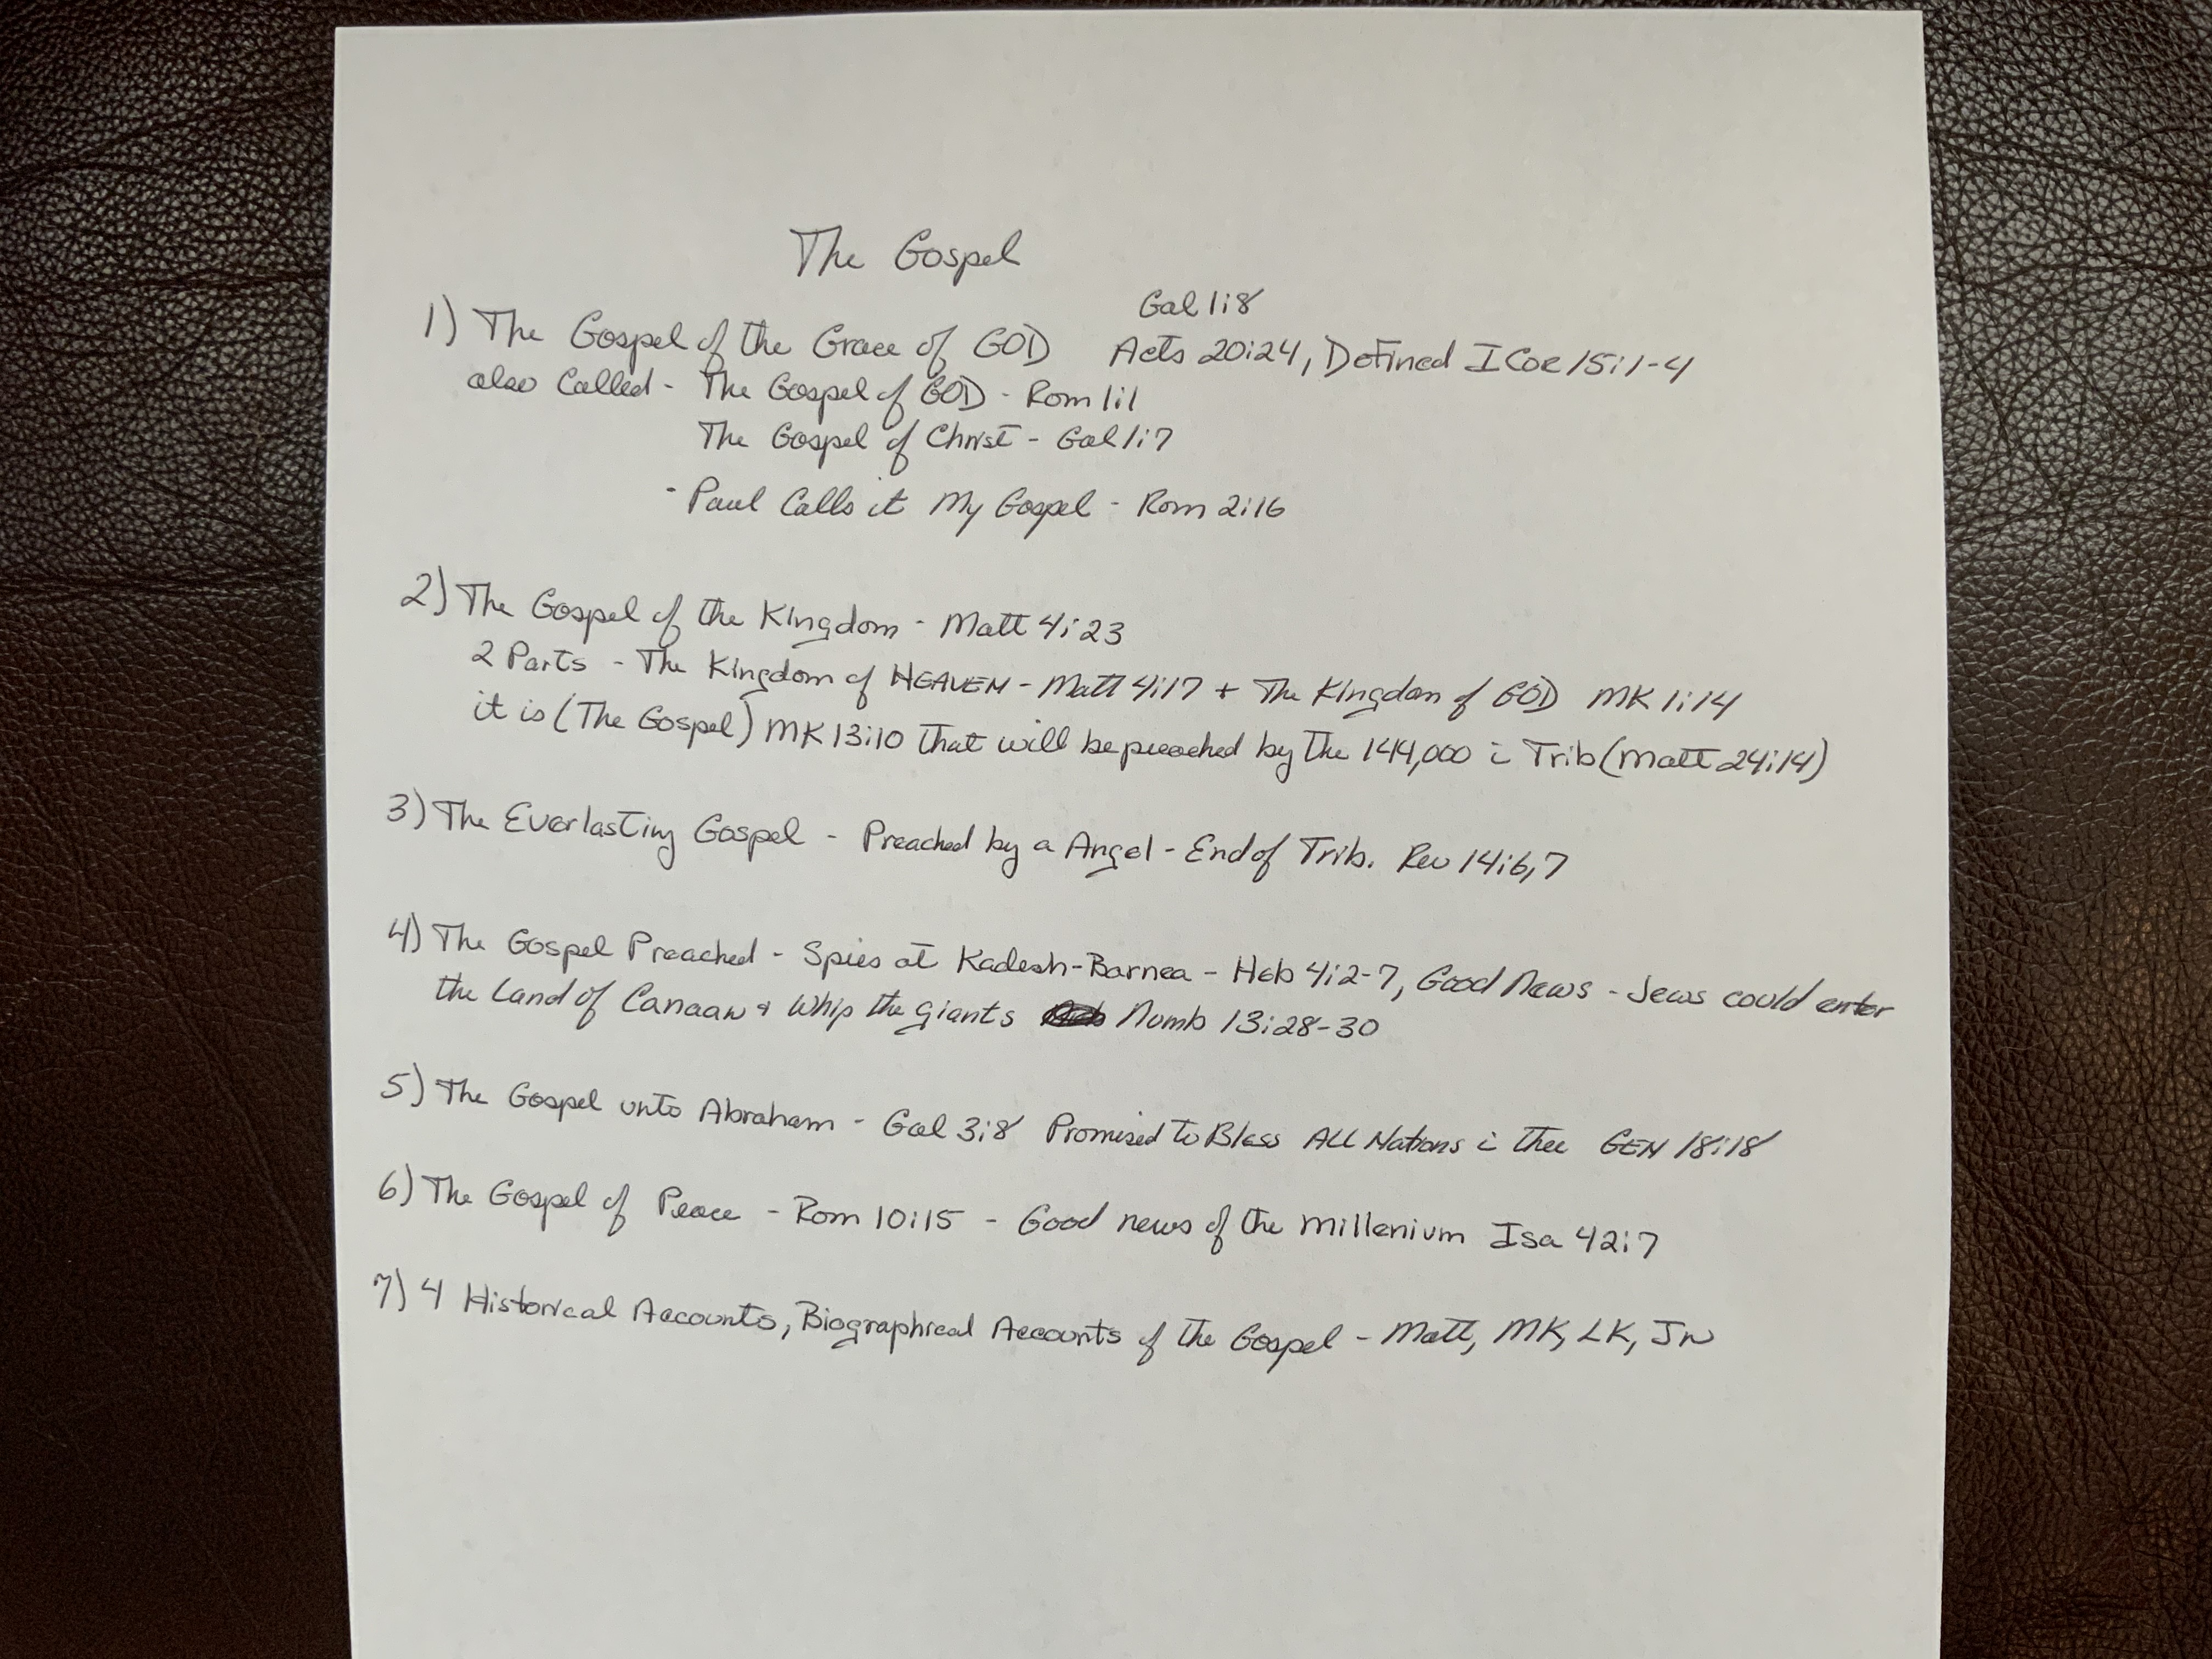 The Gospel
Gal 1:8
1) The Gospel of the Grace of GOD Acts 20:24, Defined I Cor 15:1-4
also Called - The Gospel of GOD - Rom 1:1
The Gospel of Christ - Gal 1:7
- Paul Calls it My Gospel - Rom 2:16
2) The Gospel of the Kingdom - Matt 4:23
2 Parts - The Kingdom of HEAVEN - Matt 4:17 + The Kingdom of GOD MK 1:14
it is (The Gospel) MK 13:10 that will be preached by the 144,000 i Trib (Matt 24:14)
3) The Everlasting Gospel - Preached by a Angel - End of Trib. Rev 14:6,7
4) The Gospel Preached - Spies at Kadesh-Barnea - Heb 4:2-7, Good News - Jews could enter
the Land of Canaan & Whip the giants Numb 13:28-30
5) The Gospel unto Abraham - Gal 3:8 Promised to Bless ALL Nations i thee GEN 18:18
6) The Gospel of Peace - Rom 10:15 - Good news of the Millenium Isa 42:7
7) 4 Historical Accounts, Biographical Accounts of the Gospel - Matt, MK, LK, JN